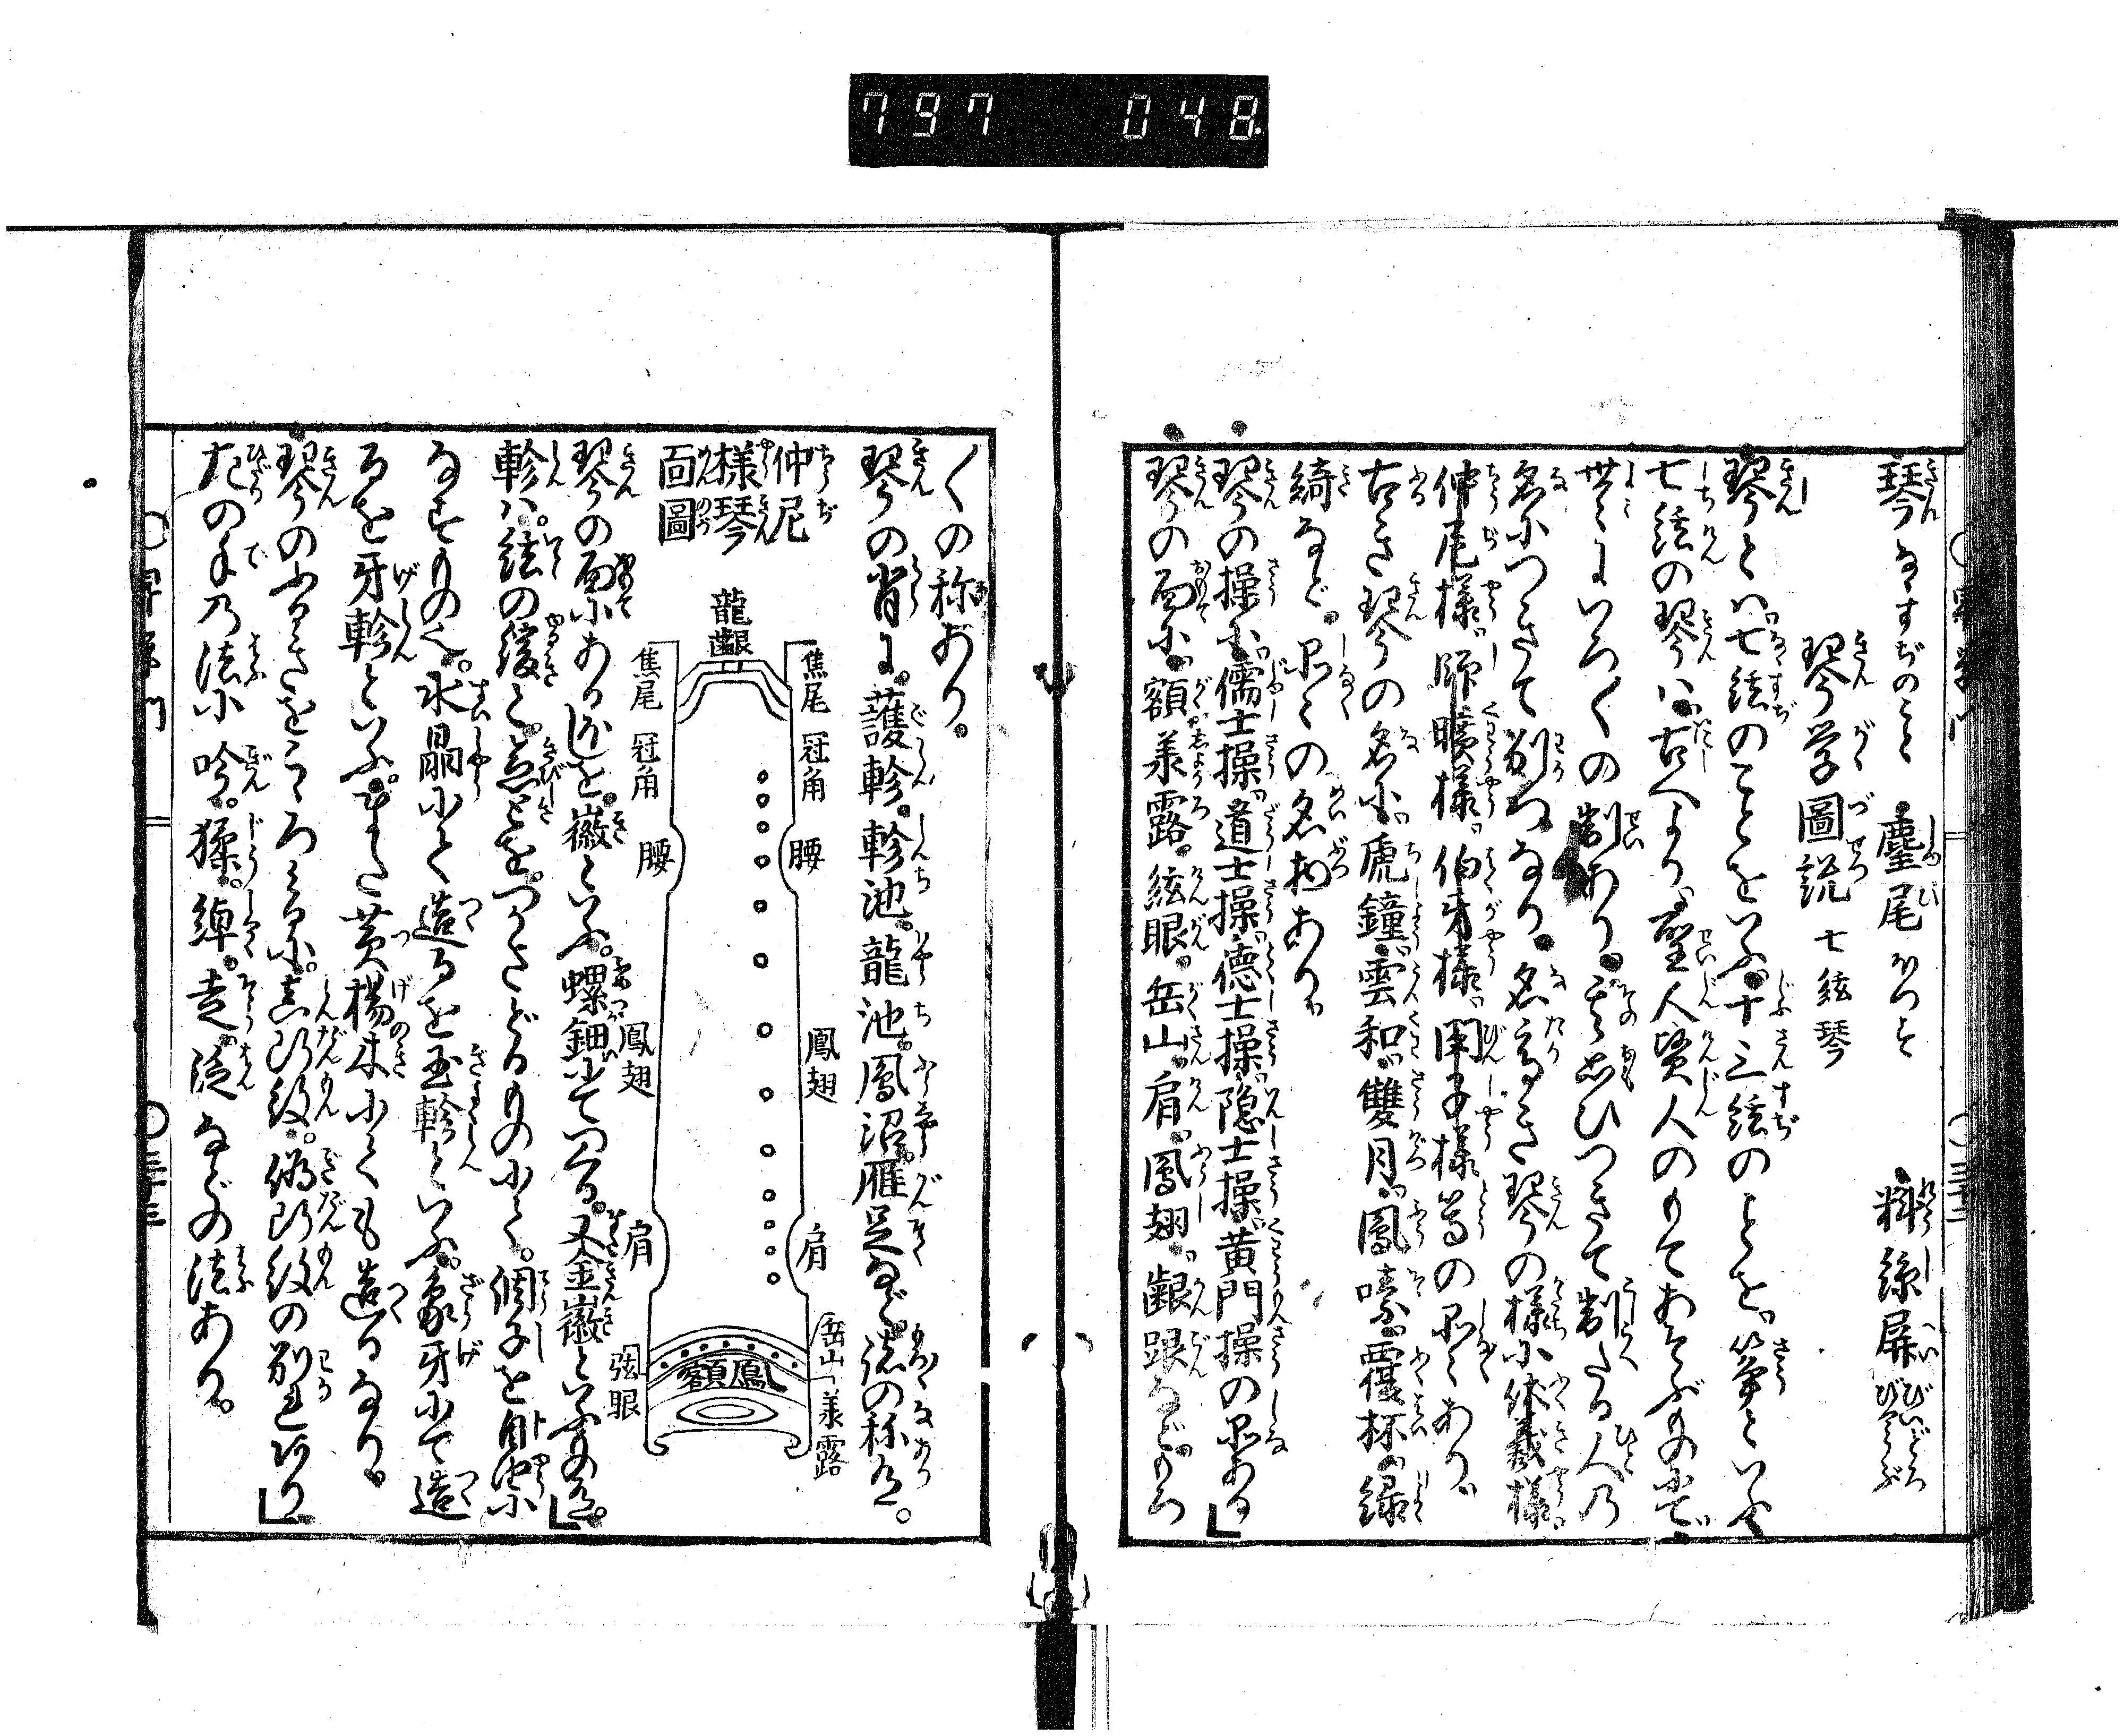 797 048
琴 なゝすぢのこと 麈尾 ほつす 料絲屏 びいどろびやうぶ
琴学圖説 七絃琴
琴とハ七絃のことをいふ十三絃のことを箏といふ
七絃の琴ハ古へより聖人賢人のもてあそぶもの にて
世々にいろ〳〵の制あり其思ひつきて制たる人の
名につきて別つなり名高き琴の様に伏羲様
仲尼様師曠様伯牙様閔子様等の品々あり
古き琴の名に虎鐘雲和雙月鳳嗉覆杯緑
綺など品々の名物あり
琴の操に儒士操道士操德士操隐士操黄門操の品ある
琴の面に額羕露絃眼岳山肩鳳翅齦跟などいろ
〳〵の称あり。
琴の背に。護軫。軫池。龍池。鳳沼。雁足など。諸の称 。
仲尼
様琴
面圖
龍齦
焦尾 冠角
腰
鳳翅
肩
岳山
羕露
焦尾 冠角
腰
鳳翅
肩
弦眼
鳳額
琴の面にある を。徽といふ。螺鈿にてつくる。又金徽といふもの 。
軫ハ。絃の緩と。急とを。つかさどるものにて。調子を
なすもの也。水晶にて造るを玉軫といふ。象牙にて造
るを牙軫といふ。また黄楊木にても造るなり。
琴のふるきをこゝろみるに。真断紋。偽断紋の別
左の手の法に吟。猱。綽。走。泛などの法あり。